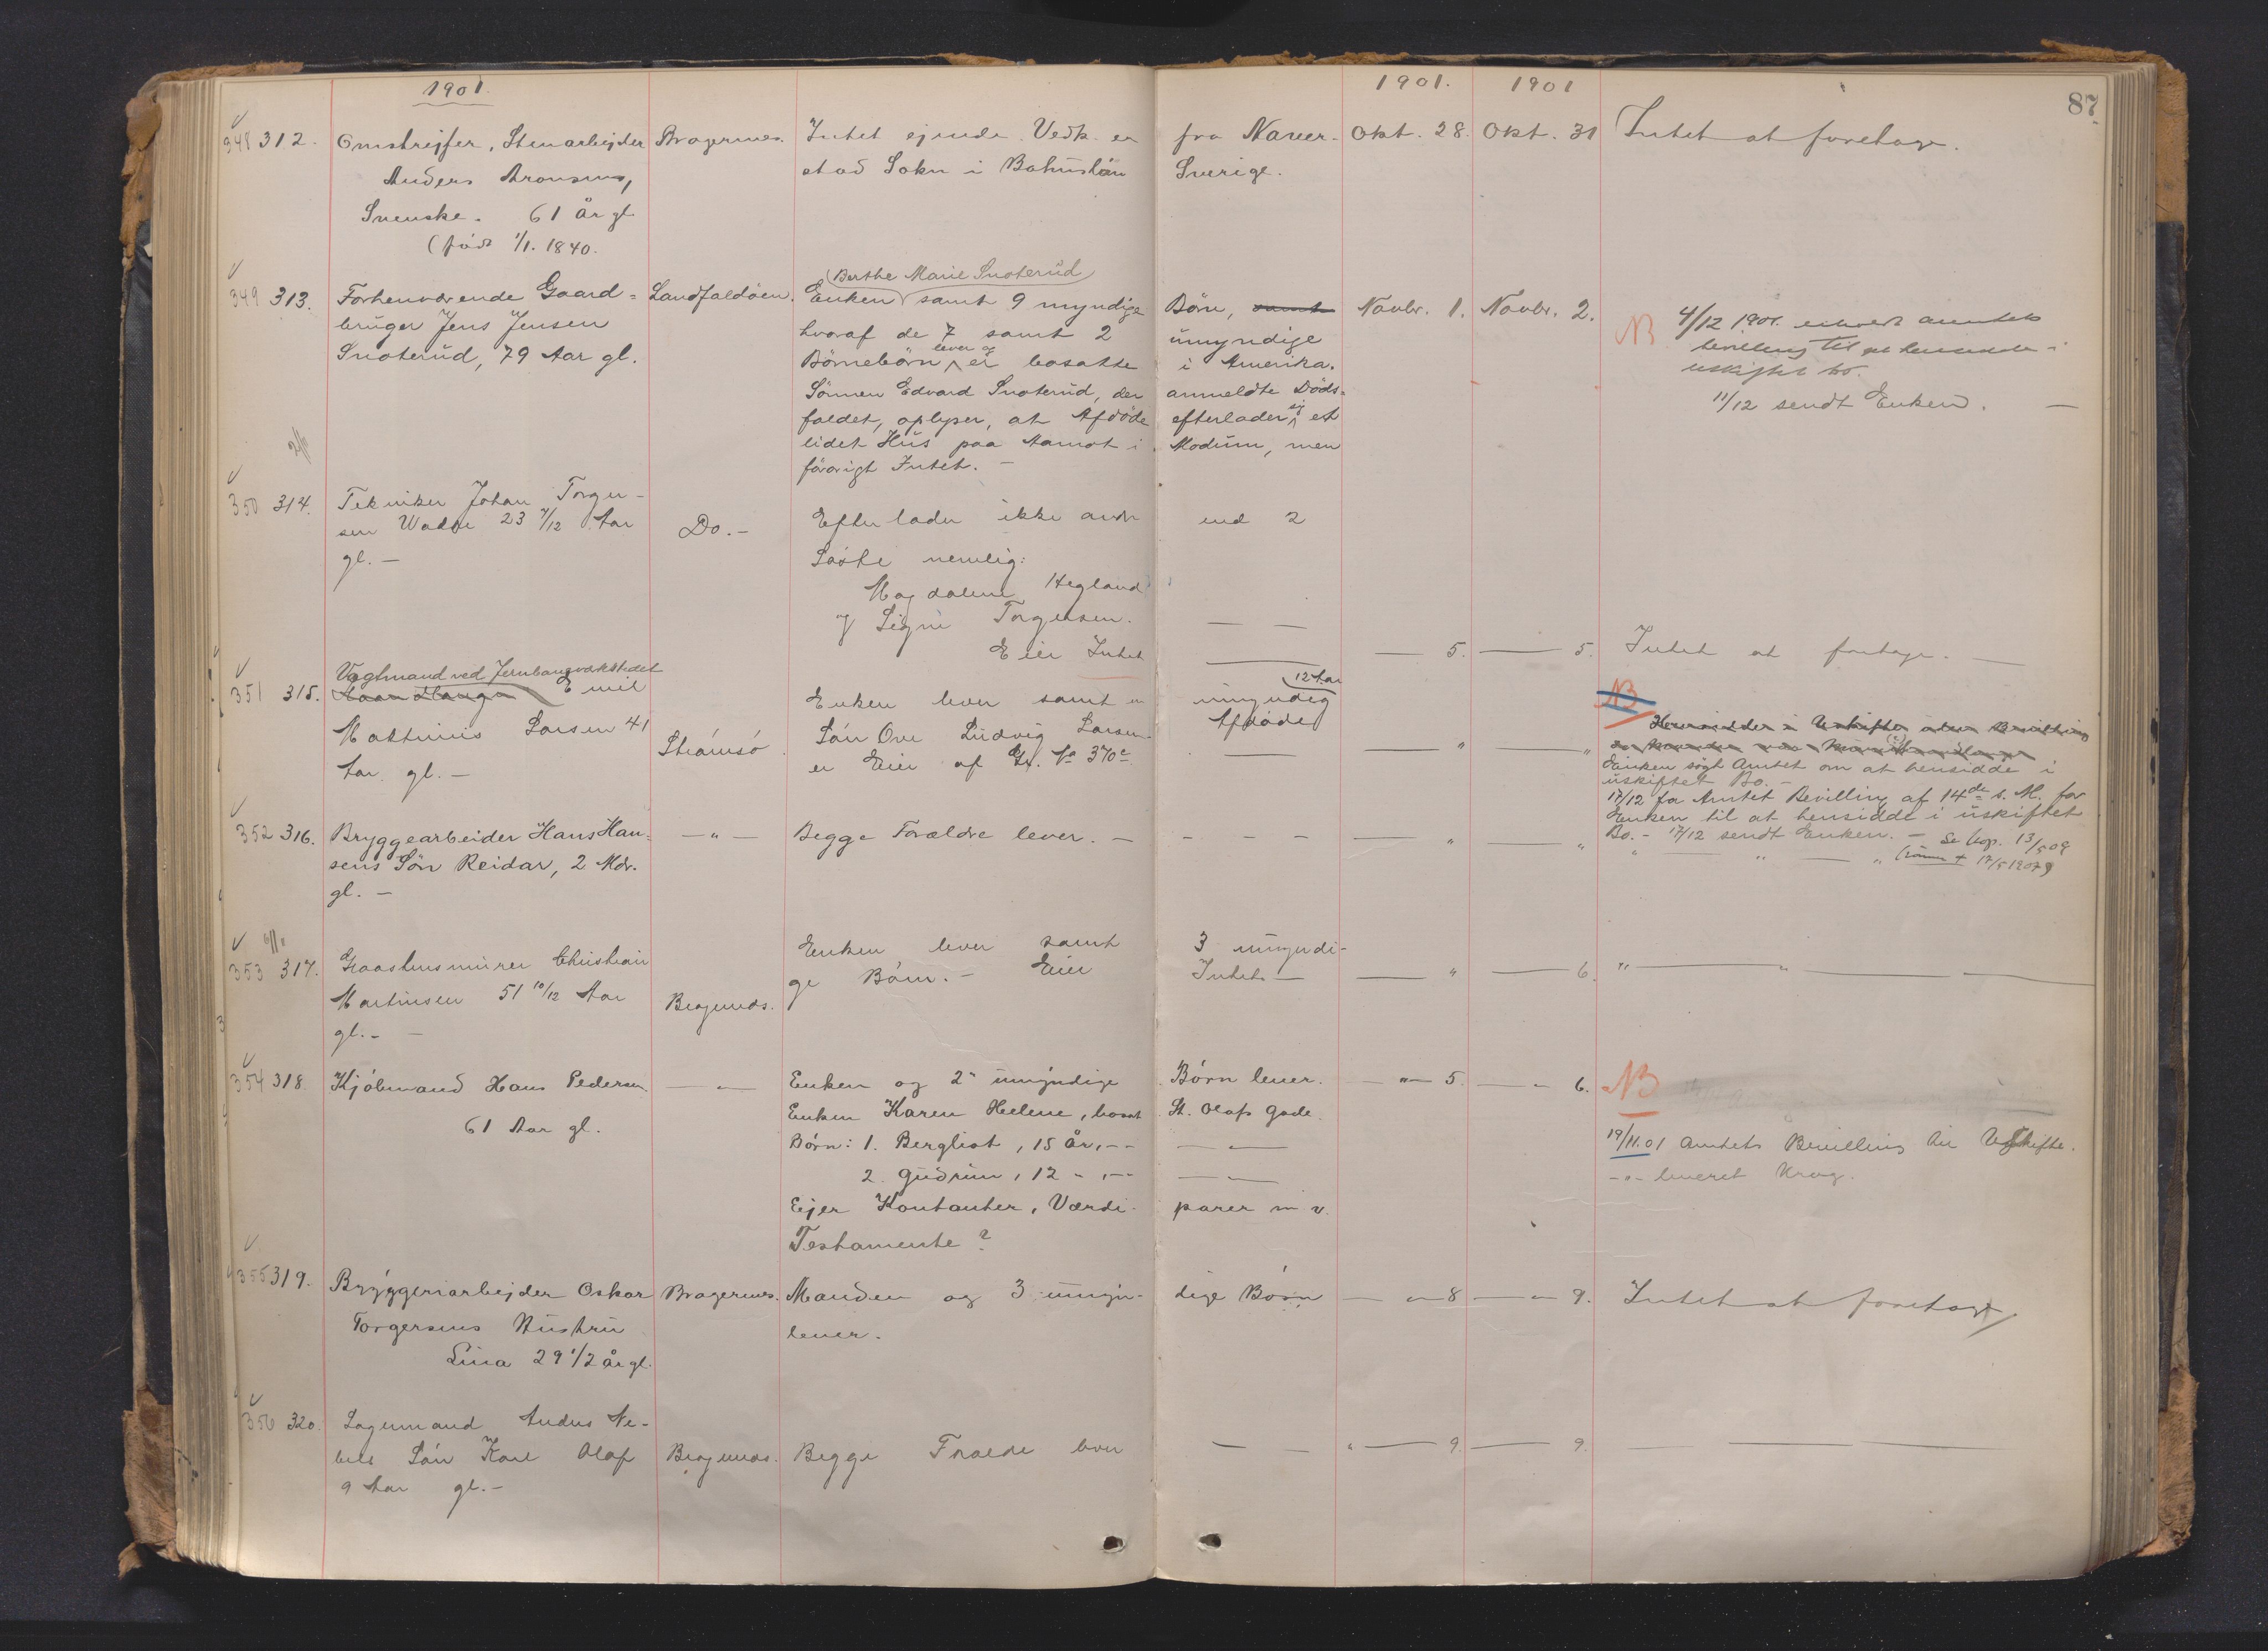 1901
1901.
1901
87
348 312. Omstreifer, Stenarbejder Bragernes. Intet ejende. Vedk. er fra Naver- Okt. 28. Okt. 31 Intet at foretage.
Anders Aronsens, stad Sokn i Bahuslän Sverige.
Svenske. 61 År gl.
(född 1/1. 1840.
(Berthe Marie Snoterud)
349 313. Forhenværende Gaard- Landfaldöen. Enken samt 9 myndige Börn, samt Novbr. 1. Novbr. 2. NB 4/12 1901.
bruger Jens Jensen hvoraf de 7 samt 2 umyndige bevilling til at hensidde i
Snoterud, 79 Aar gl. Börnebörn lever og er bosatte i Amerika. uskiftet bo.
Sönnen Edvard Snoterud, der anmeldte Döds- 11/12 sendt Enken. —
faldet, oplyser, at Afdöde efterlader sig et
lidet Hus paa Aamot i Modum, men
2/11
forövrigt Intet. —
350 314. Tekniker Johan Torger-
sen 23 7/12 Aar Do. — Efterlader ikke andre end 2
gl. —
Söstre nemlig:
Magdalene Hegland
og Signe Torgersen. — —
Eier Intet — — 5. — 5. Intet at foretage. —
Vagtmand ved Jernbaneværkstedet
351 315. Emil Enken lever samt en umyndig 12 Aar NB
Mathinius Larsen 41 Strömsö. Sön Ove Ludvig Larsen Afdöde — " — "
Aar gl. — er Eier af Gr. No 370c —
Enken sögt Amtet om at hensidde i
uskiftet Bo. —
17/12 fra Amtet Bevilling af 14de s. M. for
Enken til at hensidde i uskiftet
Bo. — 17/12 sendt Enken. — Se Kop. 13/5 09
352 316. Bryggearbeider Hans Han- — " — Begge Forældre lever. — - - - — " — " " — " — "
sens Sön Reidar, 2 Mdr.
gl. —
6/11
353 317. Graastensmurer Christian Bragernæs. Enken lever samt 3 umyndi- — " — 6. " — " —
Martinsen 51 10/12 Aar ge Börn. — Eier Intet —
gl. —
354 318. Kjöbmand Hans Pedersen — " — Enken og 2 umyndige Börn lever. — " — 5. — " — 6. NB
61 Aar gl. Enken Karen Helene, bosat St. Olafs Gade.
Börn: 1. Bergliot, 15 år, -- — " — 19/11.01 Amtets Bevilling til Uskifte.
2. Gudrun, 12 - , -- — " — - " - leveret Krag.
Ejer Kontanter, Værdi- parer m v.
Testamente?
355 319. Bryggeriarbejder Oskar Bragernes. Manden og 3 umyn- dige Börn — " — 8 — " — 9. Intet at foretage.
Torgersens Hustru lever.
Lina 29 1/2 år gl.
356 320. Lagermand Anders Ne-
bels Sön Karl Olaf Bragernæs. Begge Forældre lever — — " — 9. — 9. — —
9 Aar gl. —